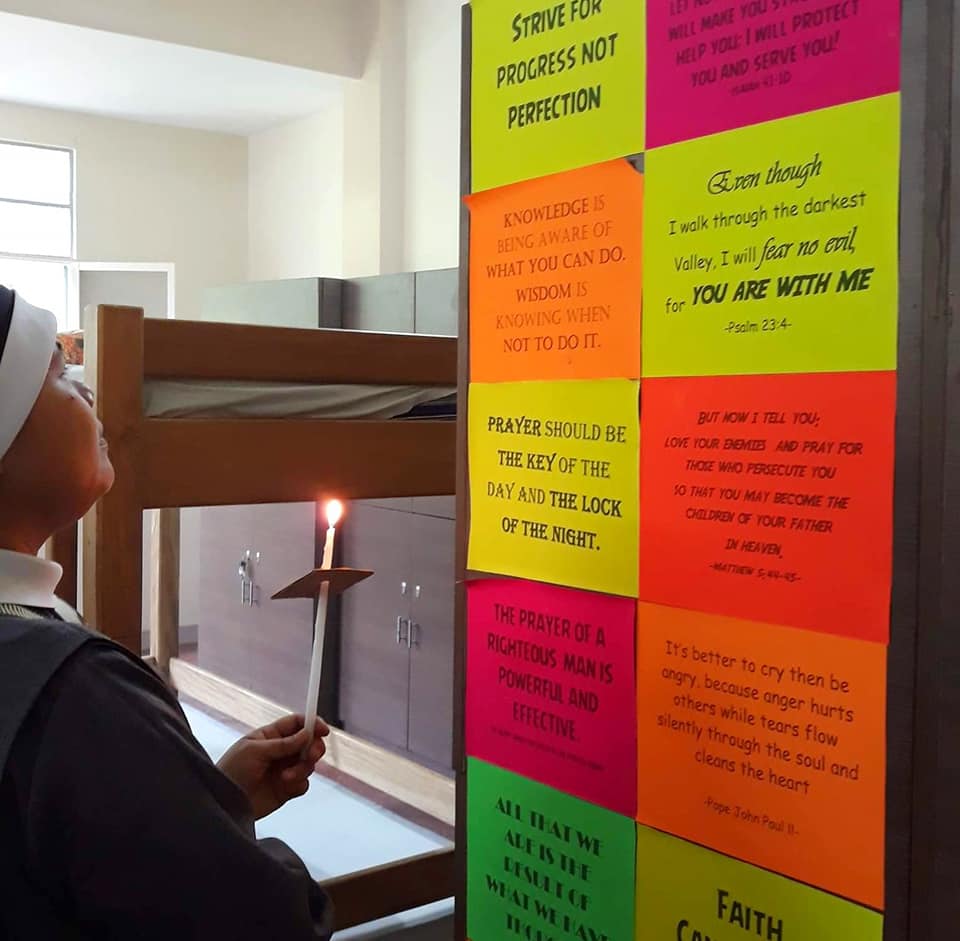 STRIVE FOR
PROGRESS NOT
PERFECTION
WILL MAKE YOU
HELP YOU; I WILL PROTECT
YOU AND SERVE YOU!
-ISAIAH 41-10
KNOWLEDGE IS
BEING AWARE OF
WHAT YOU CAN DO.
WISDOM IS
KNOWING WHEN
NOT TO DO IT.
Even though
I walk through the darkest
Valley, I will fear no evil,
for YOU ARE WITH ME
-Psalm 23:4-
PRAYER SHOULD BE
THE KEY OF THE
DAY AND THE LOCK
OF THE NIGHT.
BUT NOW I TELL YOU;
LOVE YOUR ENEMIES AND PRAY FOR
THOSE WHO PERSECUTE YOU
SO THAT YOU MAY BECOME THE
CHILDREN OF YOUR FATHER
IN HEAVEN,
-MATTHEW 5:44-45-
THE PRAYER OF A
RIGHTEOUS MAN IS
POWERFUL AND
EFFECTIVE.
It's better to cry then be
angry, because anger hurts
others while tears flow
silently through the soul and
cleans the heart
-Pope John Paul II-
ALL THAT WE
ARE IS THE
RESULT OF
WHAT WE HAVE
FAITH